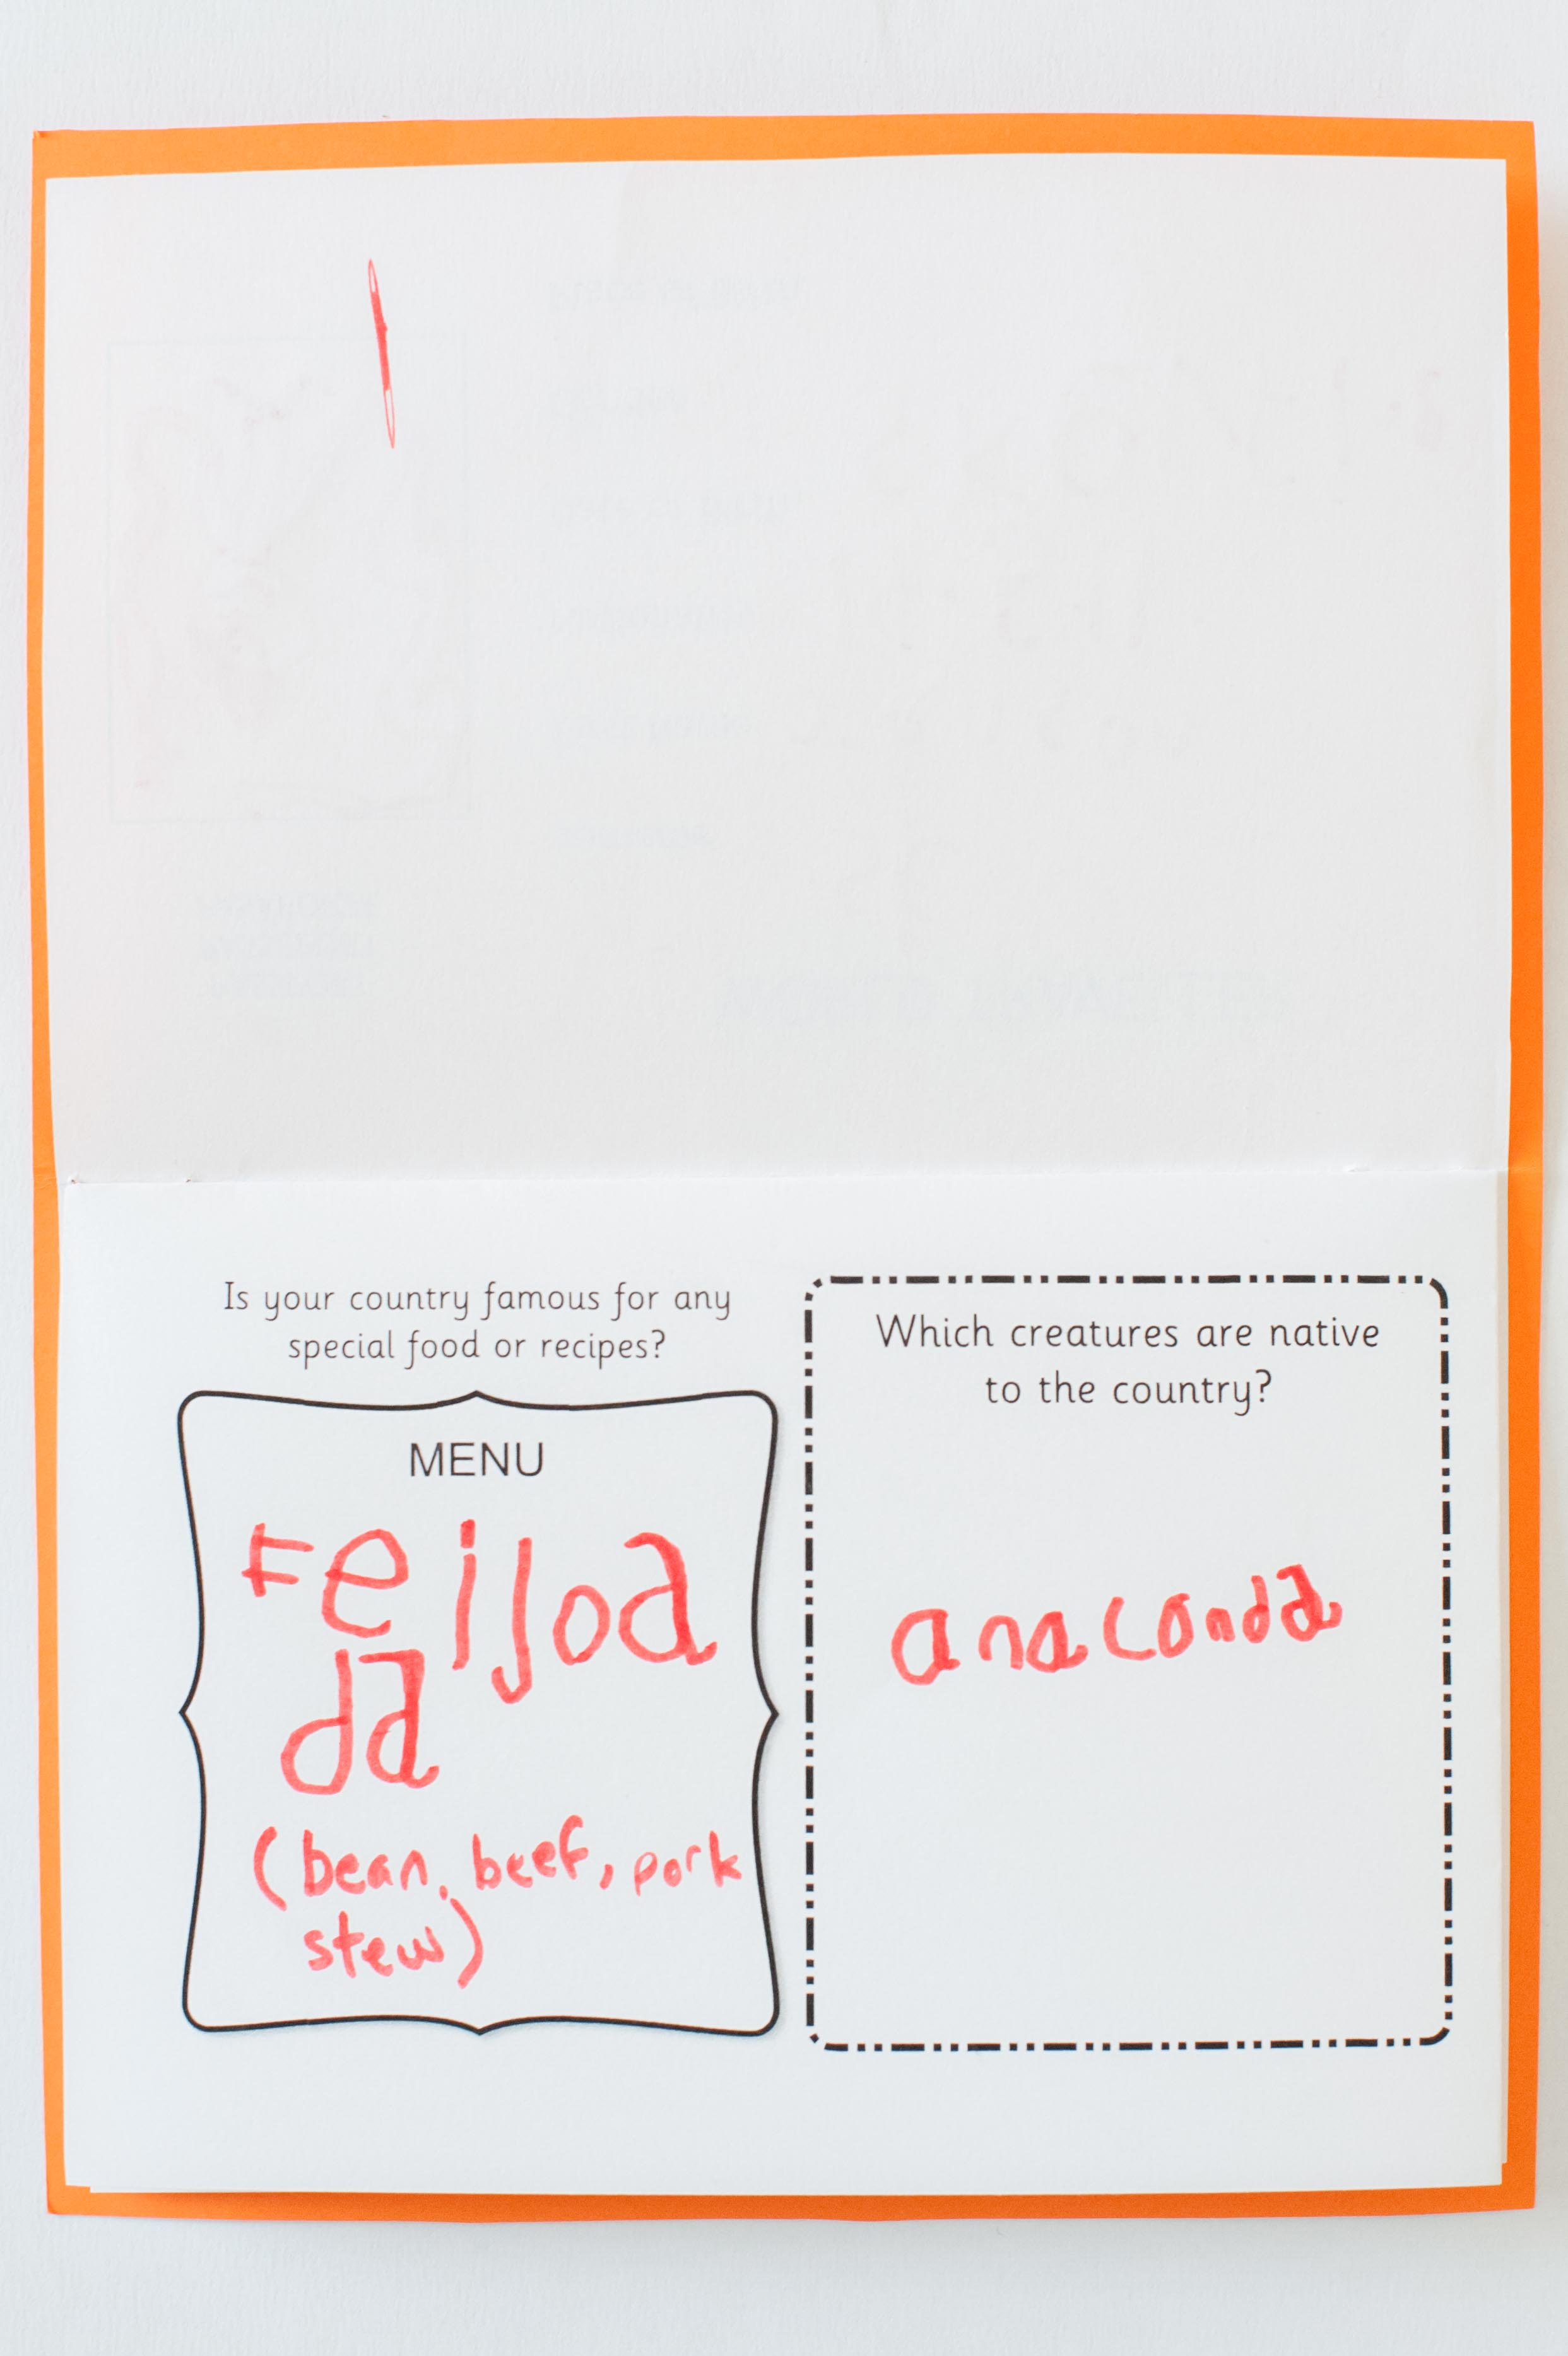 Is your country famous for any
special food or recipes?
MENU
Feijoa
da
(bean, beef, pork
stew)
Which creatures are native
to the country?
anaconda